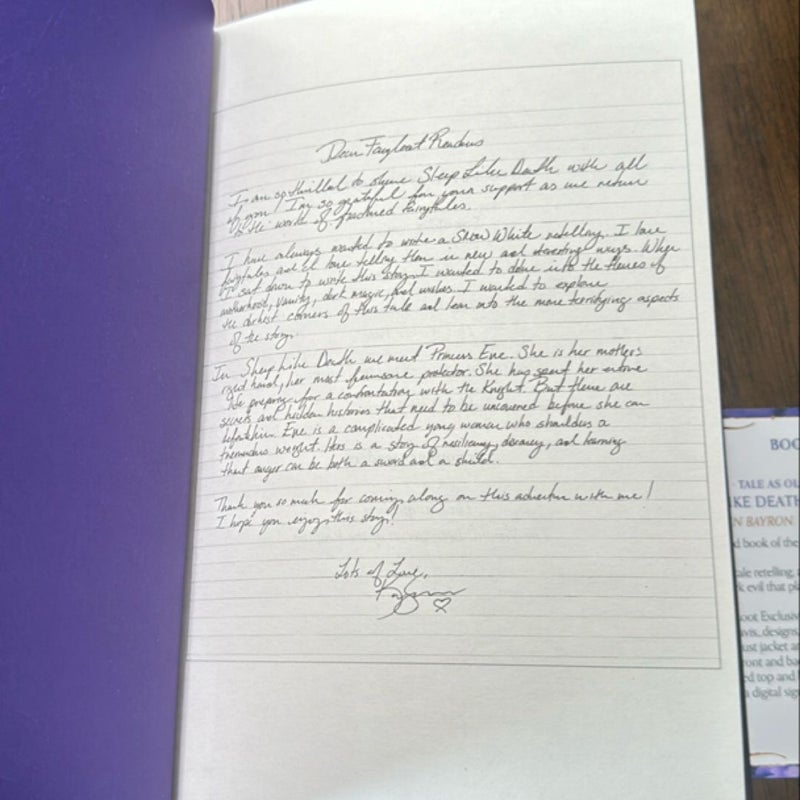 Dear Fairyloot Readers
I am so thrilled to share Sleep Like Death with all
of you! I'm so grateful for your support as we return
to the world of fractured fairytales.
I have always wanted to write a Snow White retelling. I love
fairytales and I love telling them in new and ways. When
I sat down to write this story I wanted to delve into the themes of
motherhood, vanity, dark magic, and wishes. I wanted to explore
the darkest corners of this tale and lean into the more terrifying aspects
of the story.
In Sleep Like Death we meet Princess Eve. She is her mothers
right hand, her most fearsome protector. She has spent her entire
life preparing for a confrontation with the Knight. But there are
secrets and hidden histories that need to be uncovered before she can
defeat him. Eve is a complicated young woman who shoulders a
tremendous weight. Hers is a story of resiliency, discovery, and learning
that anger can be both a sword and a shield.
Thank you so much for coming along on this adventure with me!
I hope you enjoy this story!
Lots of Love,
BOO
TALE AS OL
KE DEATH
N BAYRON
d book of the
ale retelling,
k evil that pl
oot Exclusiv
avis, designs
ust jacket a
ront and ba
ed top and
a digital sig